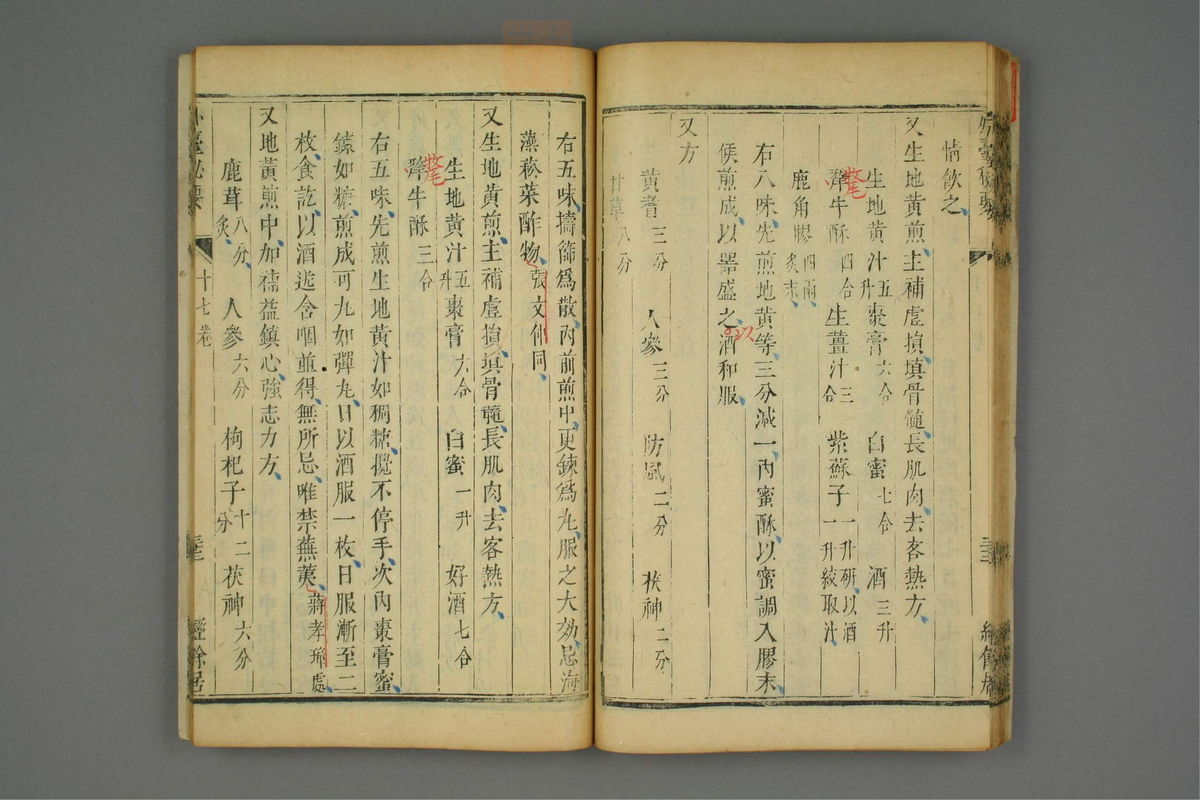 情飲之
又生地黃煎主補虛損填骨髓長肌肉去客熱方
生地黃汁五升 棗膏六合 白蜜七合 酒三升
犛牛酥四合 生薑汁三合 紫蘇子一升研以酒一升絞取汁
鹿角膠四兩炙末
右八味先煎地黃等三分減一內蜜酥以蜜調入膠末
候煎成以器盛之酒和服
以
又方
黃耆三分 人參三分 防風二分 茯神二分
甘草八分
右五味擣篩爲散內前煎中更鍊爲丸服之大効忌海
藻菘菜酢物張文仲同
又生地黃煎主補虛損填骨髓長肌肉去客熱方
生地黃汁五升 棗膏六合 白蜜一升 好酒七合
犛牛酥三合
右五味先煎生地黃汁如稠糖攪不停手次內棗膏蜜
鎍如糖煎成可丸如彈丸日以酒服一枚日服漸至二
枚食訖以酒送含咽並得無所忌唯禁蕪荑蔣孝璋處
又地黃煎中加穤益鎮心強志力方
鹿茸八分炙 人參六分 枸杞子十二分 茯神六分
外臺秘要
十七卷
經餘居